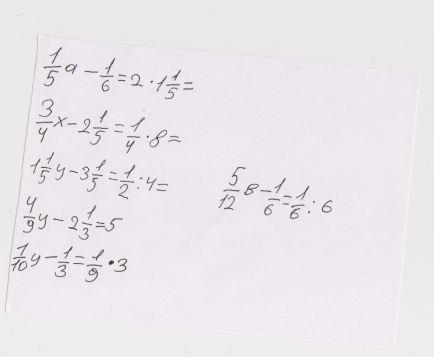 1/5 a - 1/6 = 2 · 1 1/5 =
3/4 x - 2 1/5 = 1/4 · 8 =
1 1/5 y - 3 1/5 = 1/2 : 4 =
4/9 y - 2 1/3 = 5
1/10 y - 1/3 = 1/9 · 3
5/12 в - 1/6 = 1/6 : 6